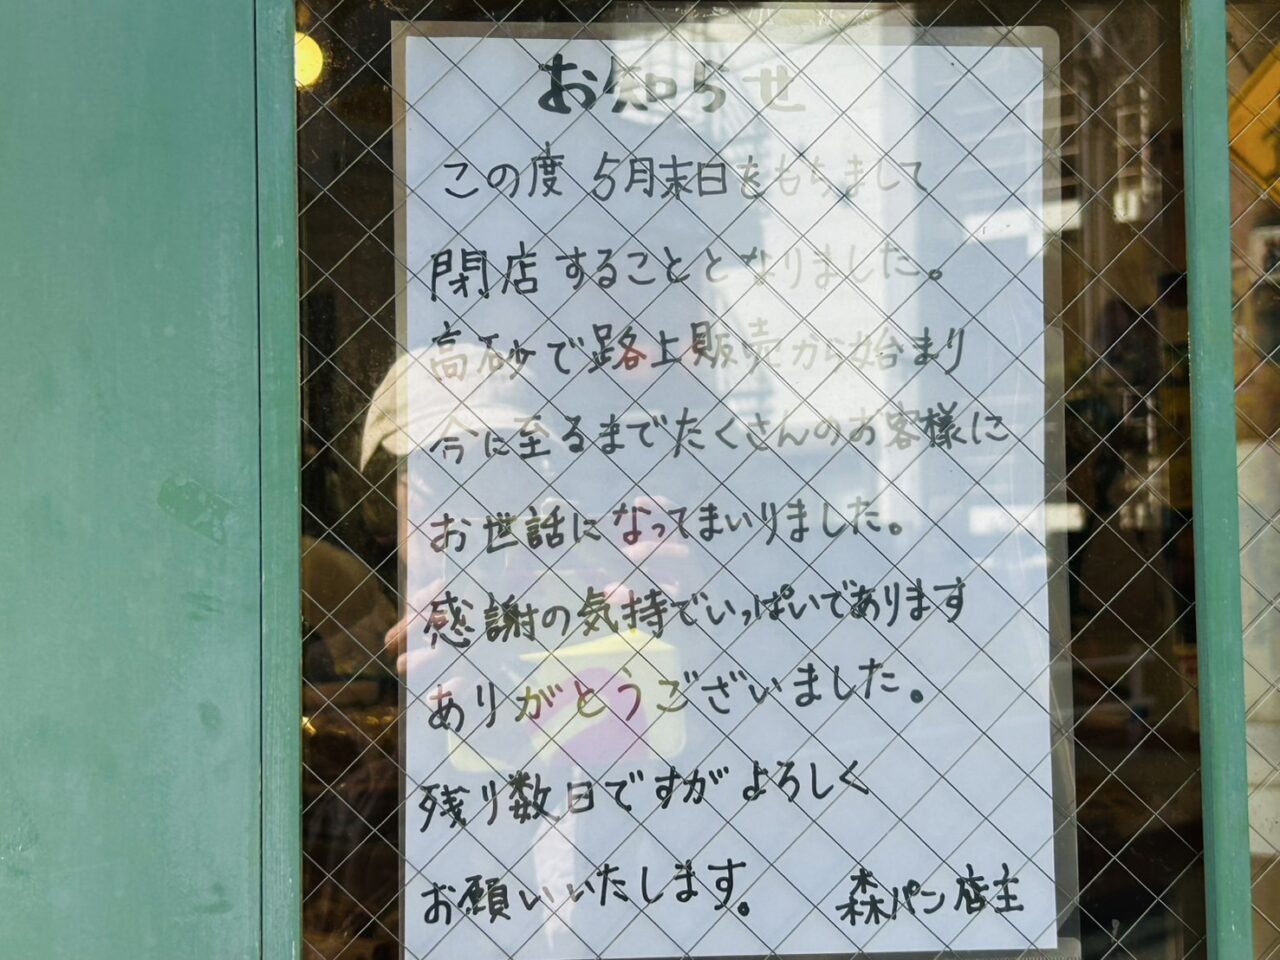 お知らせ
この度 5月末日をもちまして
閉店することとなりました。
高砂で路上販売から始まり
今に至るまでたくさんのお客様に
お世話になってまいりました。
感謝の気持でいっぱいであります
ありがとうございました。
残り数日ですがよろしく
お願いいたします。 森パン店主